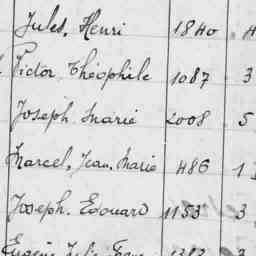 Jules, Henri 1840 . 4
Victor, Théophile 1087 . 3
Joseph Marie 2008 . 5
Marcel, Jean. Marie 486 1
Joseph. Edouard 1153 . 3
Eugène Jules 3